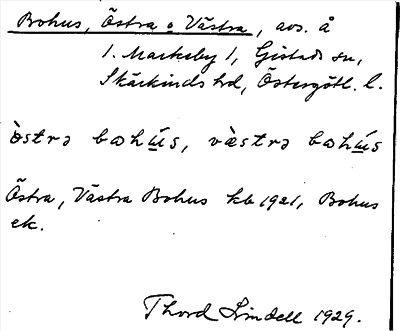 Bohus, Östra o Västra, avs. å
1. Markeby 1, Gistads sn,
Skärkinds hd, Östergötl. l.
ὸstrə bωhú̲s, vὲstrə bωhú̲s
Östra, Västra Bohus kb 1921, Bohus
ek.
Thord Lindell 1929.